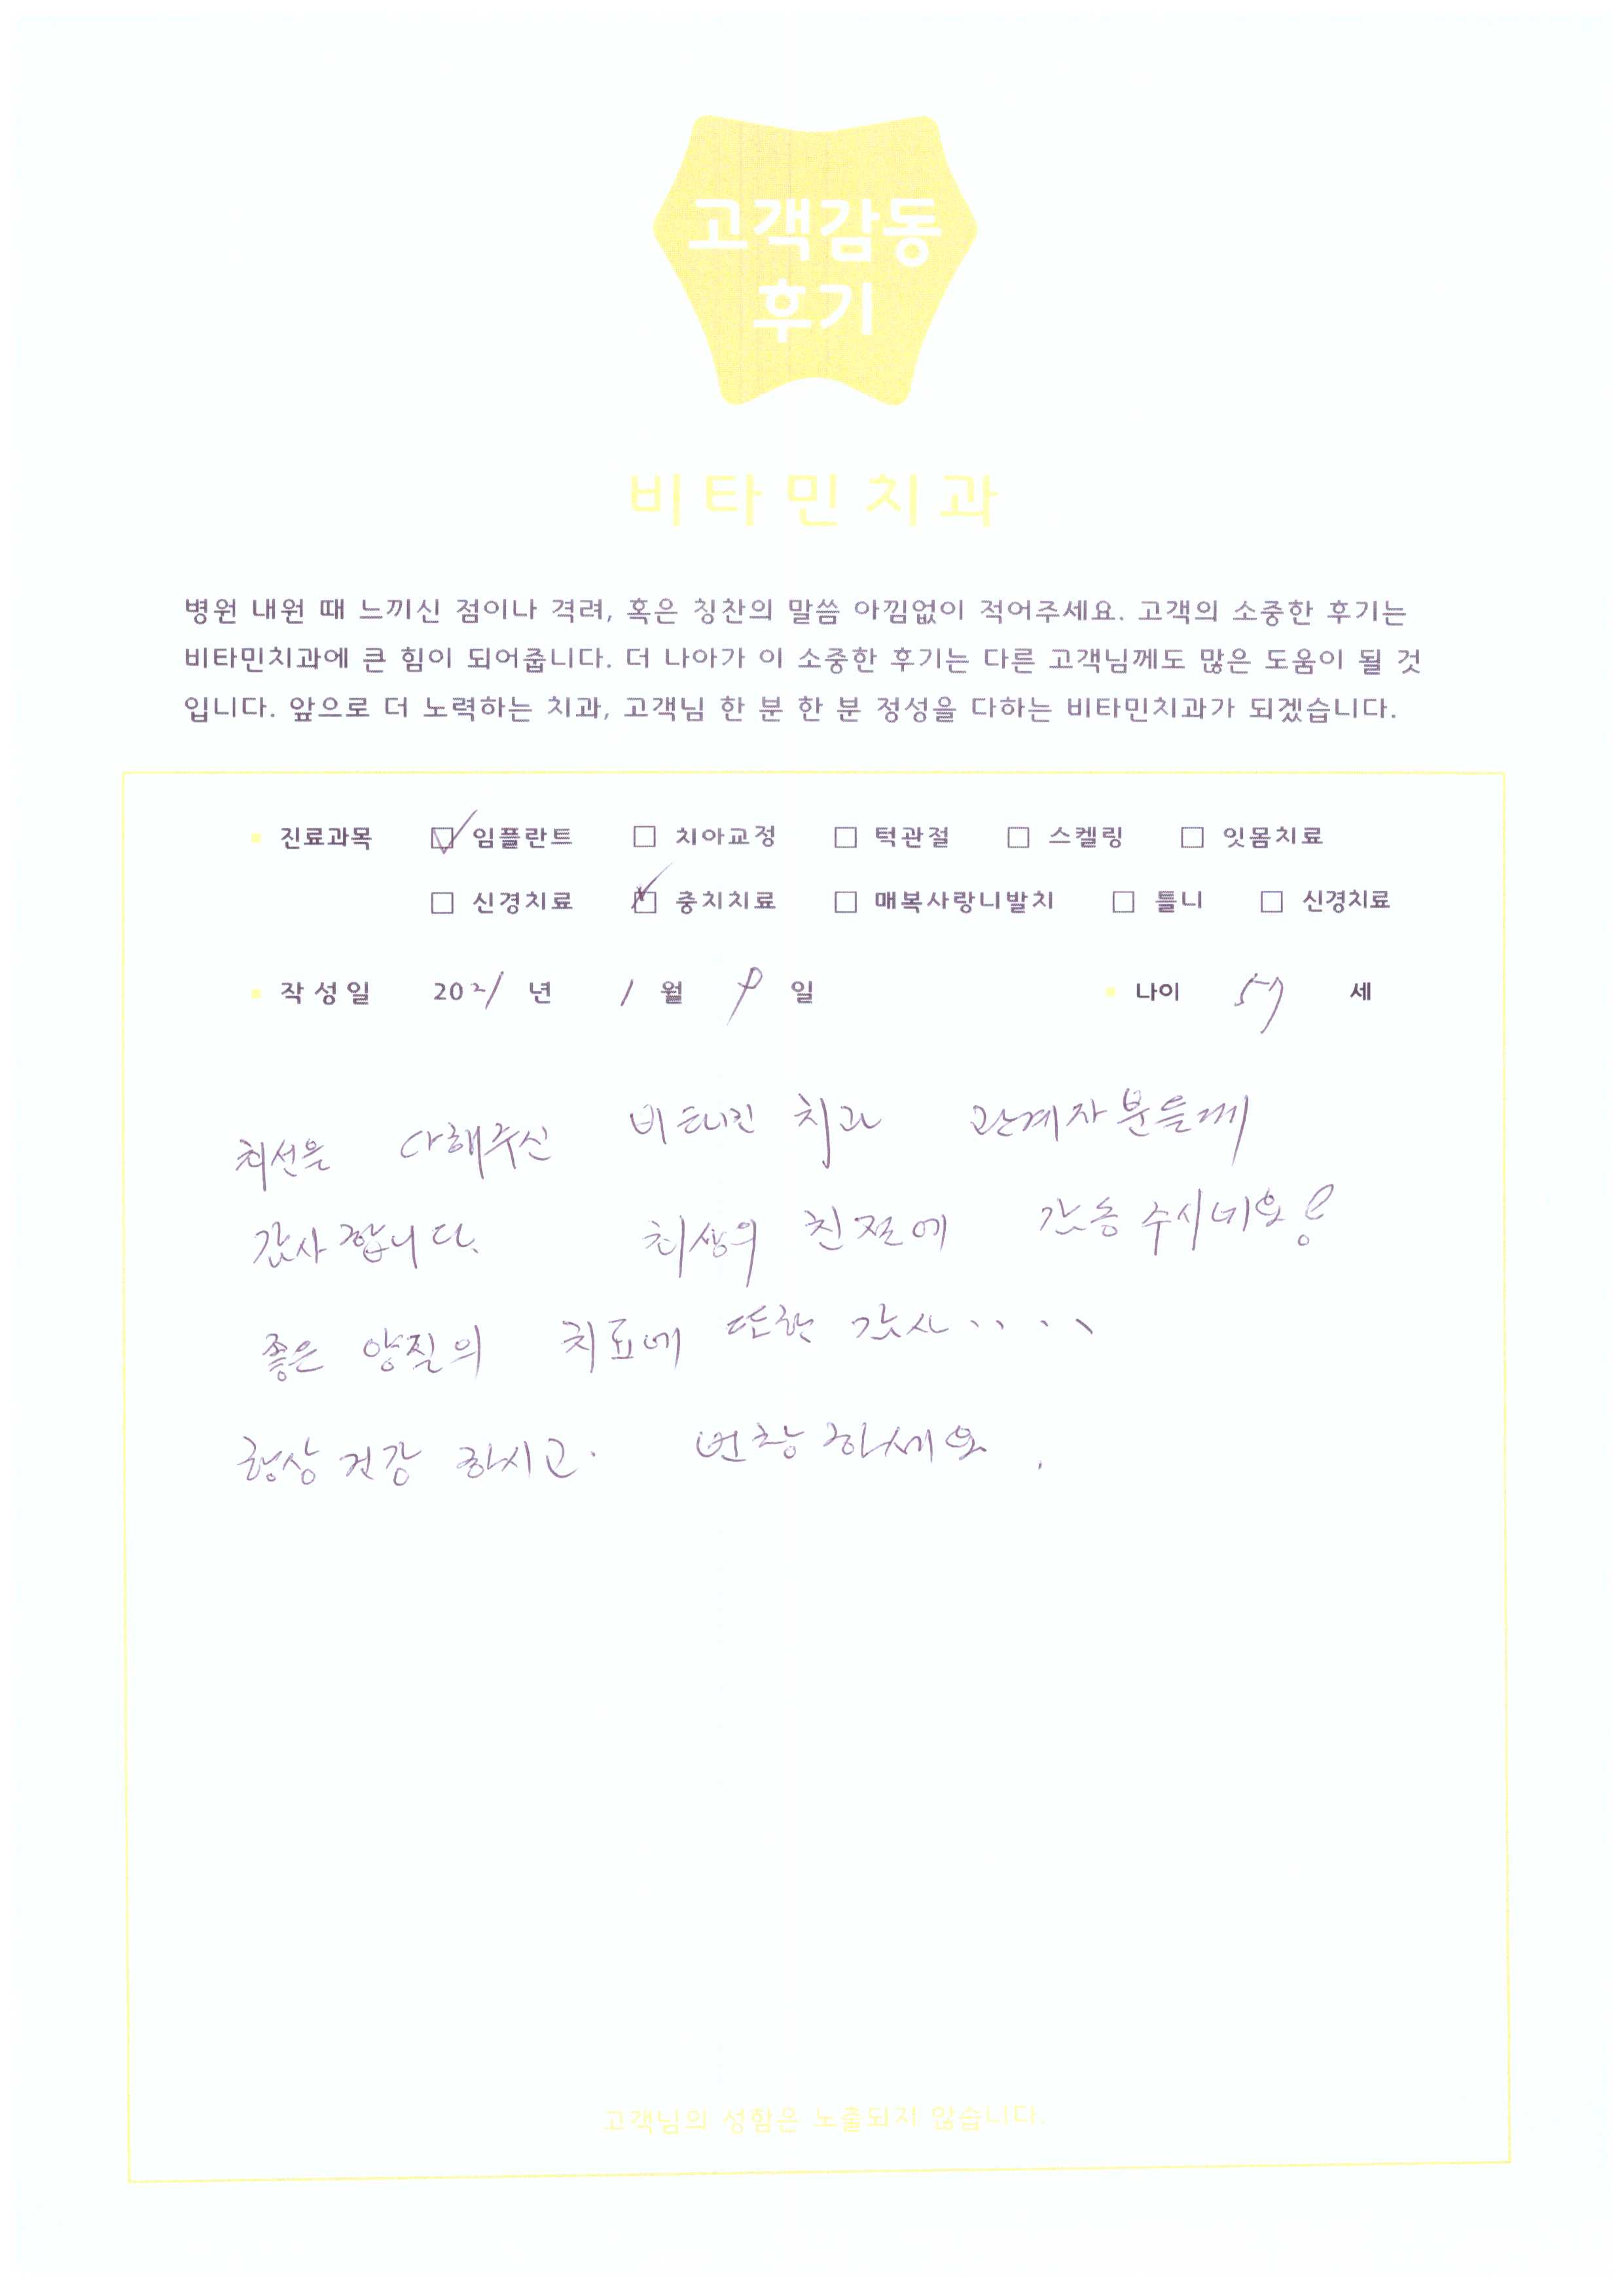 고객감동
후기
비타민치과
병원 내원 때 느끼신 점이나 격려, 혹은 칭찬의 말씀 아낌없이 적어주세요. 고객의 소중한 후기는
비타민치과에 큰 힘이 되어줍니다. 더 나아가 이 소중한 후기는 다른 고객님께도 많은 도움이 될 것
입니다. 앞으로 더 노력하는 치과, 고객님 한 분 한 분 정성을 다하는 비타민치과가 되겠습니다.
진료과목 ☑ 임플란트 ☐ 치아교정 ☐ 턱관절 ☐ 스켈링 ☐ 잇몸치료
☐ 신경치료 ☑ 충치치료 ☐ 매복사랑니발치 ☐ 틀니 ☐ 신경치료
작성일 2021 년 1 월 9 일 나이 57 세
최선을 다해주신 치과 관계자분들께
감사합니다. 친절에 감동
좋은 양질의 치료에 또한 감사....
항상 건강 하시고. 번창 하세요.
고객님의 성함은 노출되지 않습니다.